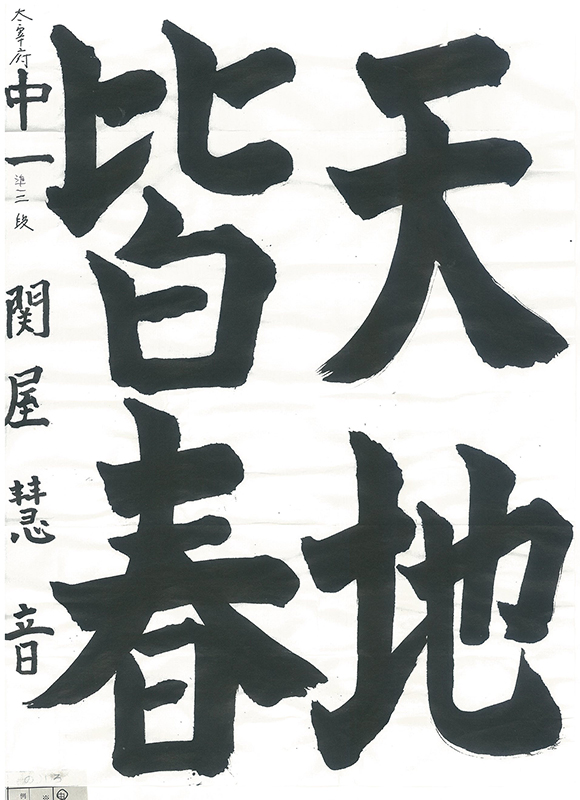 天地
皆春
太宰府
中一
準三段
関屋慧音